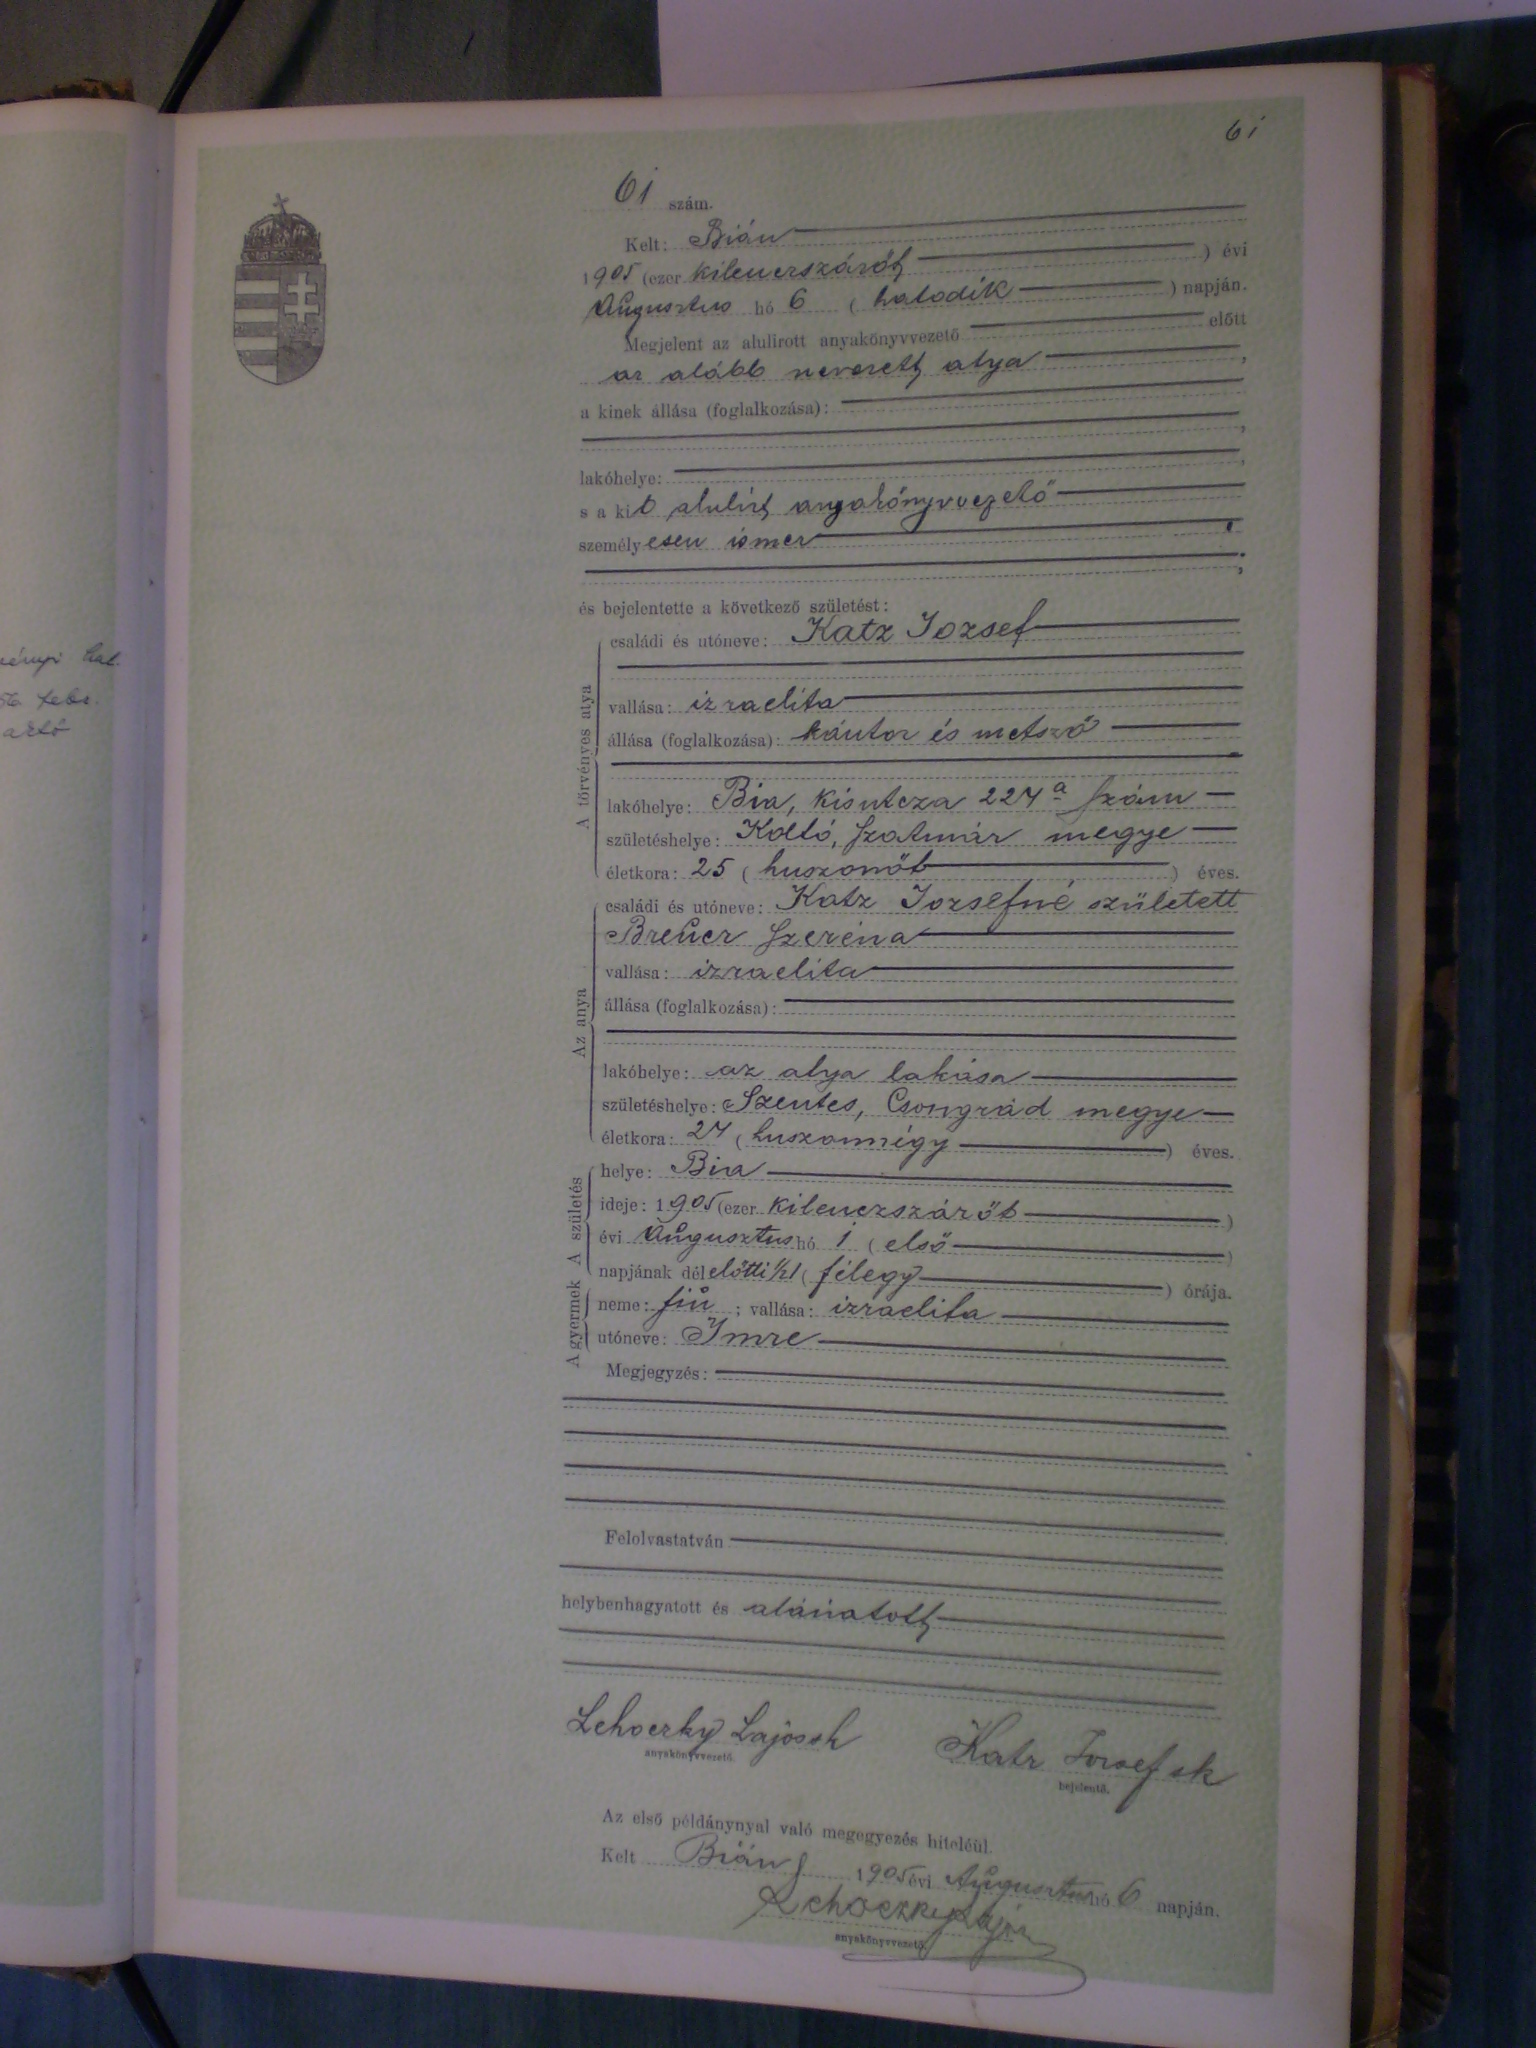 61
61 szám.
Kelt: Bián
1905 (ezer kilenczszázöt ) évi
Augusztus hó 6 ( hatodik ) napján.
Megjelent az alulirott anyakönyvvezető előtt
az alább nevezett atya ,
a kinek állása (foglalkozása):
,
lakóhelye: ,
s a kit alulírt anyakönyvvezető
személyesen ismer
;
és bejelentette a következő születést:
A törvényes atya
családi és utóneve: Katz Jozsef
vallása: izraelita
állása (foglalkozása): kántor és metsző
lakóhelye: Bia, kisutcza 224 a szám
születéshelye: Koltó, Szatmár megye
életkora: 25 ( huszonöt ) éves.
Az anya
családi és utóneve: Katz Jozsefné született
Breuer Szeréna
vallása: izraelita
állása (foglalkozása):
lakóhelye: az atya lakása
születéshelye: Szentes, Csongrád megye
életkora: 24 ( huszonnégy ) éves.
A születés
helye: Bia
ideje: 1905 (ezer kilenczszázöt )
évi Augusztus hó 1 ( első )
napjának délelőtti ½1 ( félegy ) órája.
A gyermek
neme: fiú ; vallása: izraelita
utóneve: Imre
Megjegyzés:
Felolvastatván
helybenhagyatott és aláiratott
Lehoczky Lajos sk Katz Jozsef sk
anyakönyvvezető. bejelentő.
Az első példánynyal való megegyezés hiteléül.
Kelt Bián, 1905 évi Augusztus hó 6 napján.
Lehoczky Lajos
anyakönyvvezető.